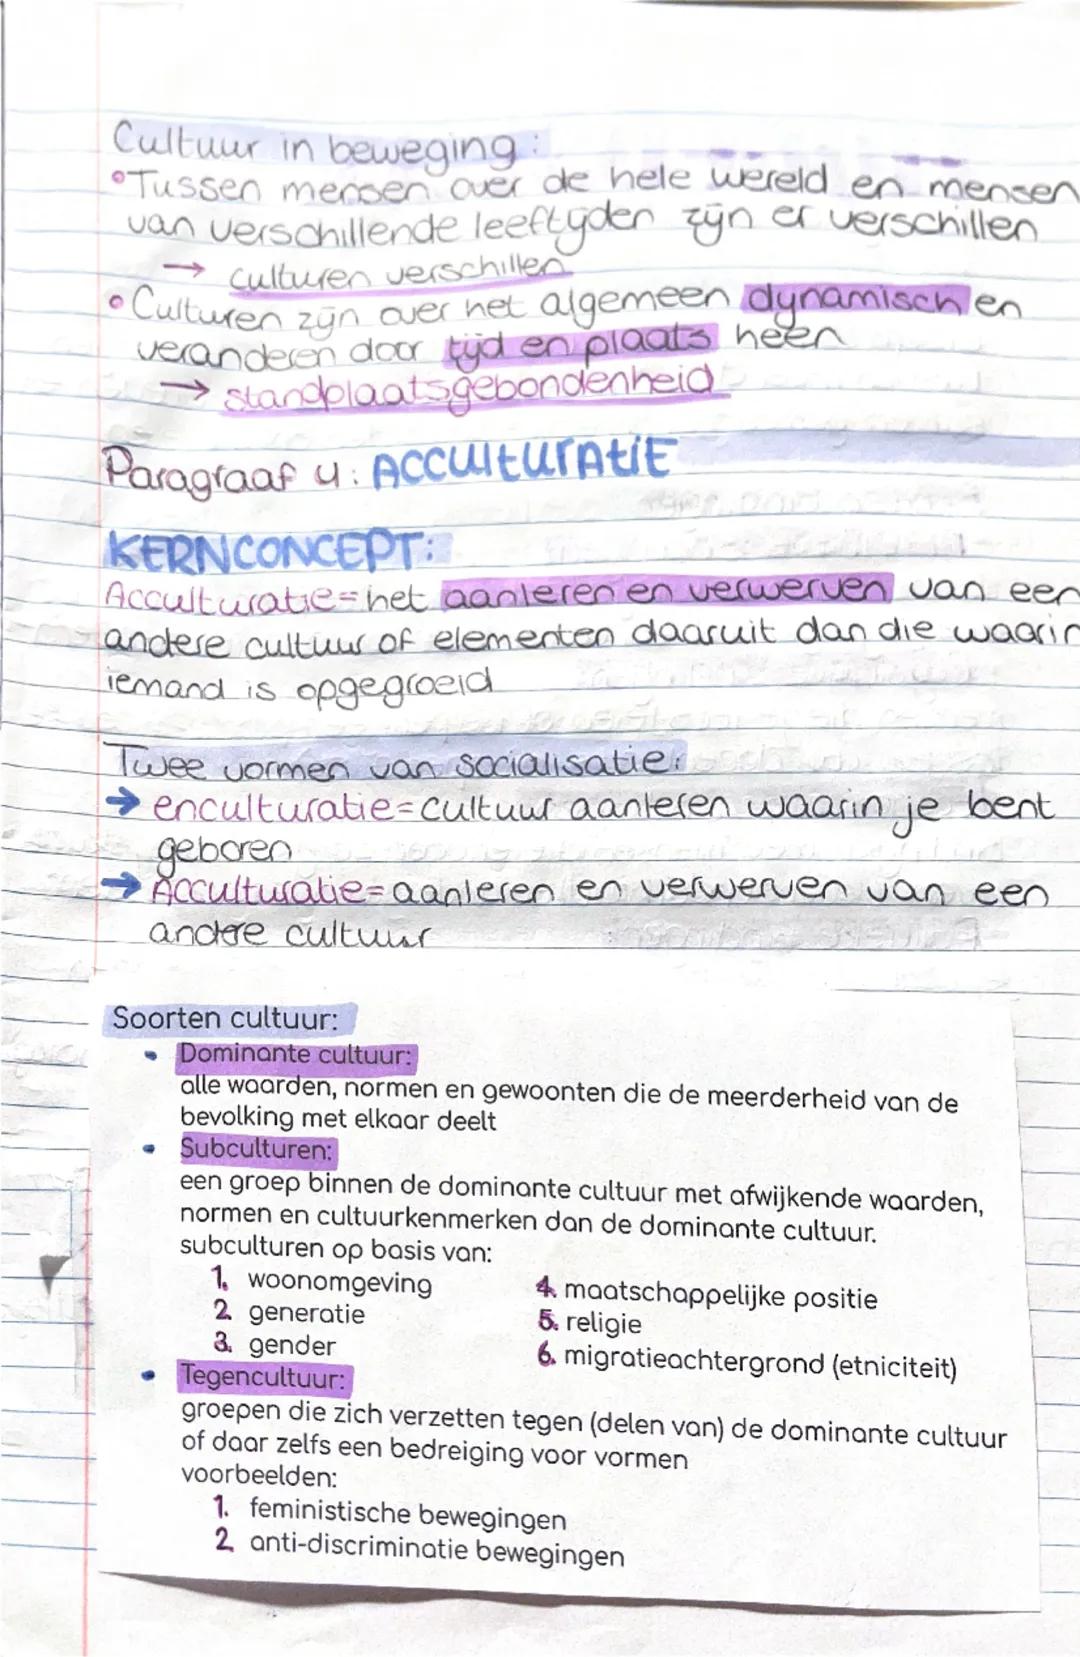 Cultuur in beweging:
•Tussen mensen over de hele wereld en mensen
van verschillende leeftijden zijn er verschillen
→ culturen verschillen
•Culturen zijn over het algemeen dynamisch en
veranderen door tijd en plaats heen
→ standplaatsgebondenheid
Paragraaf 4: ACCULTURATIE
KERNCONCEPT:
Acculturatie= het aanleren en verwerven van een
andere cultuur of elementen daaruit dan die waarin
iemand is opgegroeid
Twee vormen van socialisatie:
→ enculturatie= cultuur aanleren waarin je bent
geboren
→ Acculturatie= aanleren en verwerven van een
andere cultuur
Soorten cultuur:
• Dominante cultuur:
alle waarden, normen en gewoonten die de meerderheid van de
bevolking met elkaar deelt
• Subculturen:
een groep binnen de dominante cultuur met afwijkende waarden,
normen en cultuurkenmerken dan de dominante cultuur.
subculturen op basis van:
1. woonomgeving
2. generatie
3. gender
4. maatschappelijke positie
5. religie
6. migratieachtergrond (etniciteit)
• Tegencultuur:
groepen die zich verzetten tegen (delen van) de dominante cultuur
of daar zelfs een bedreiging voor vormen
voorbeelden:
1. feministische bewegingen
2. anti-discriminatie bewegingen